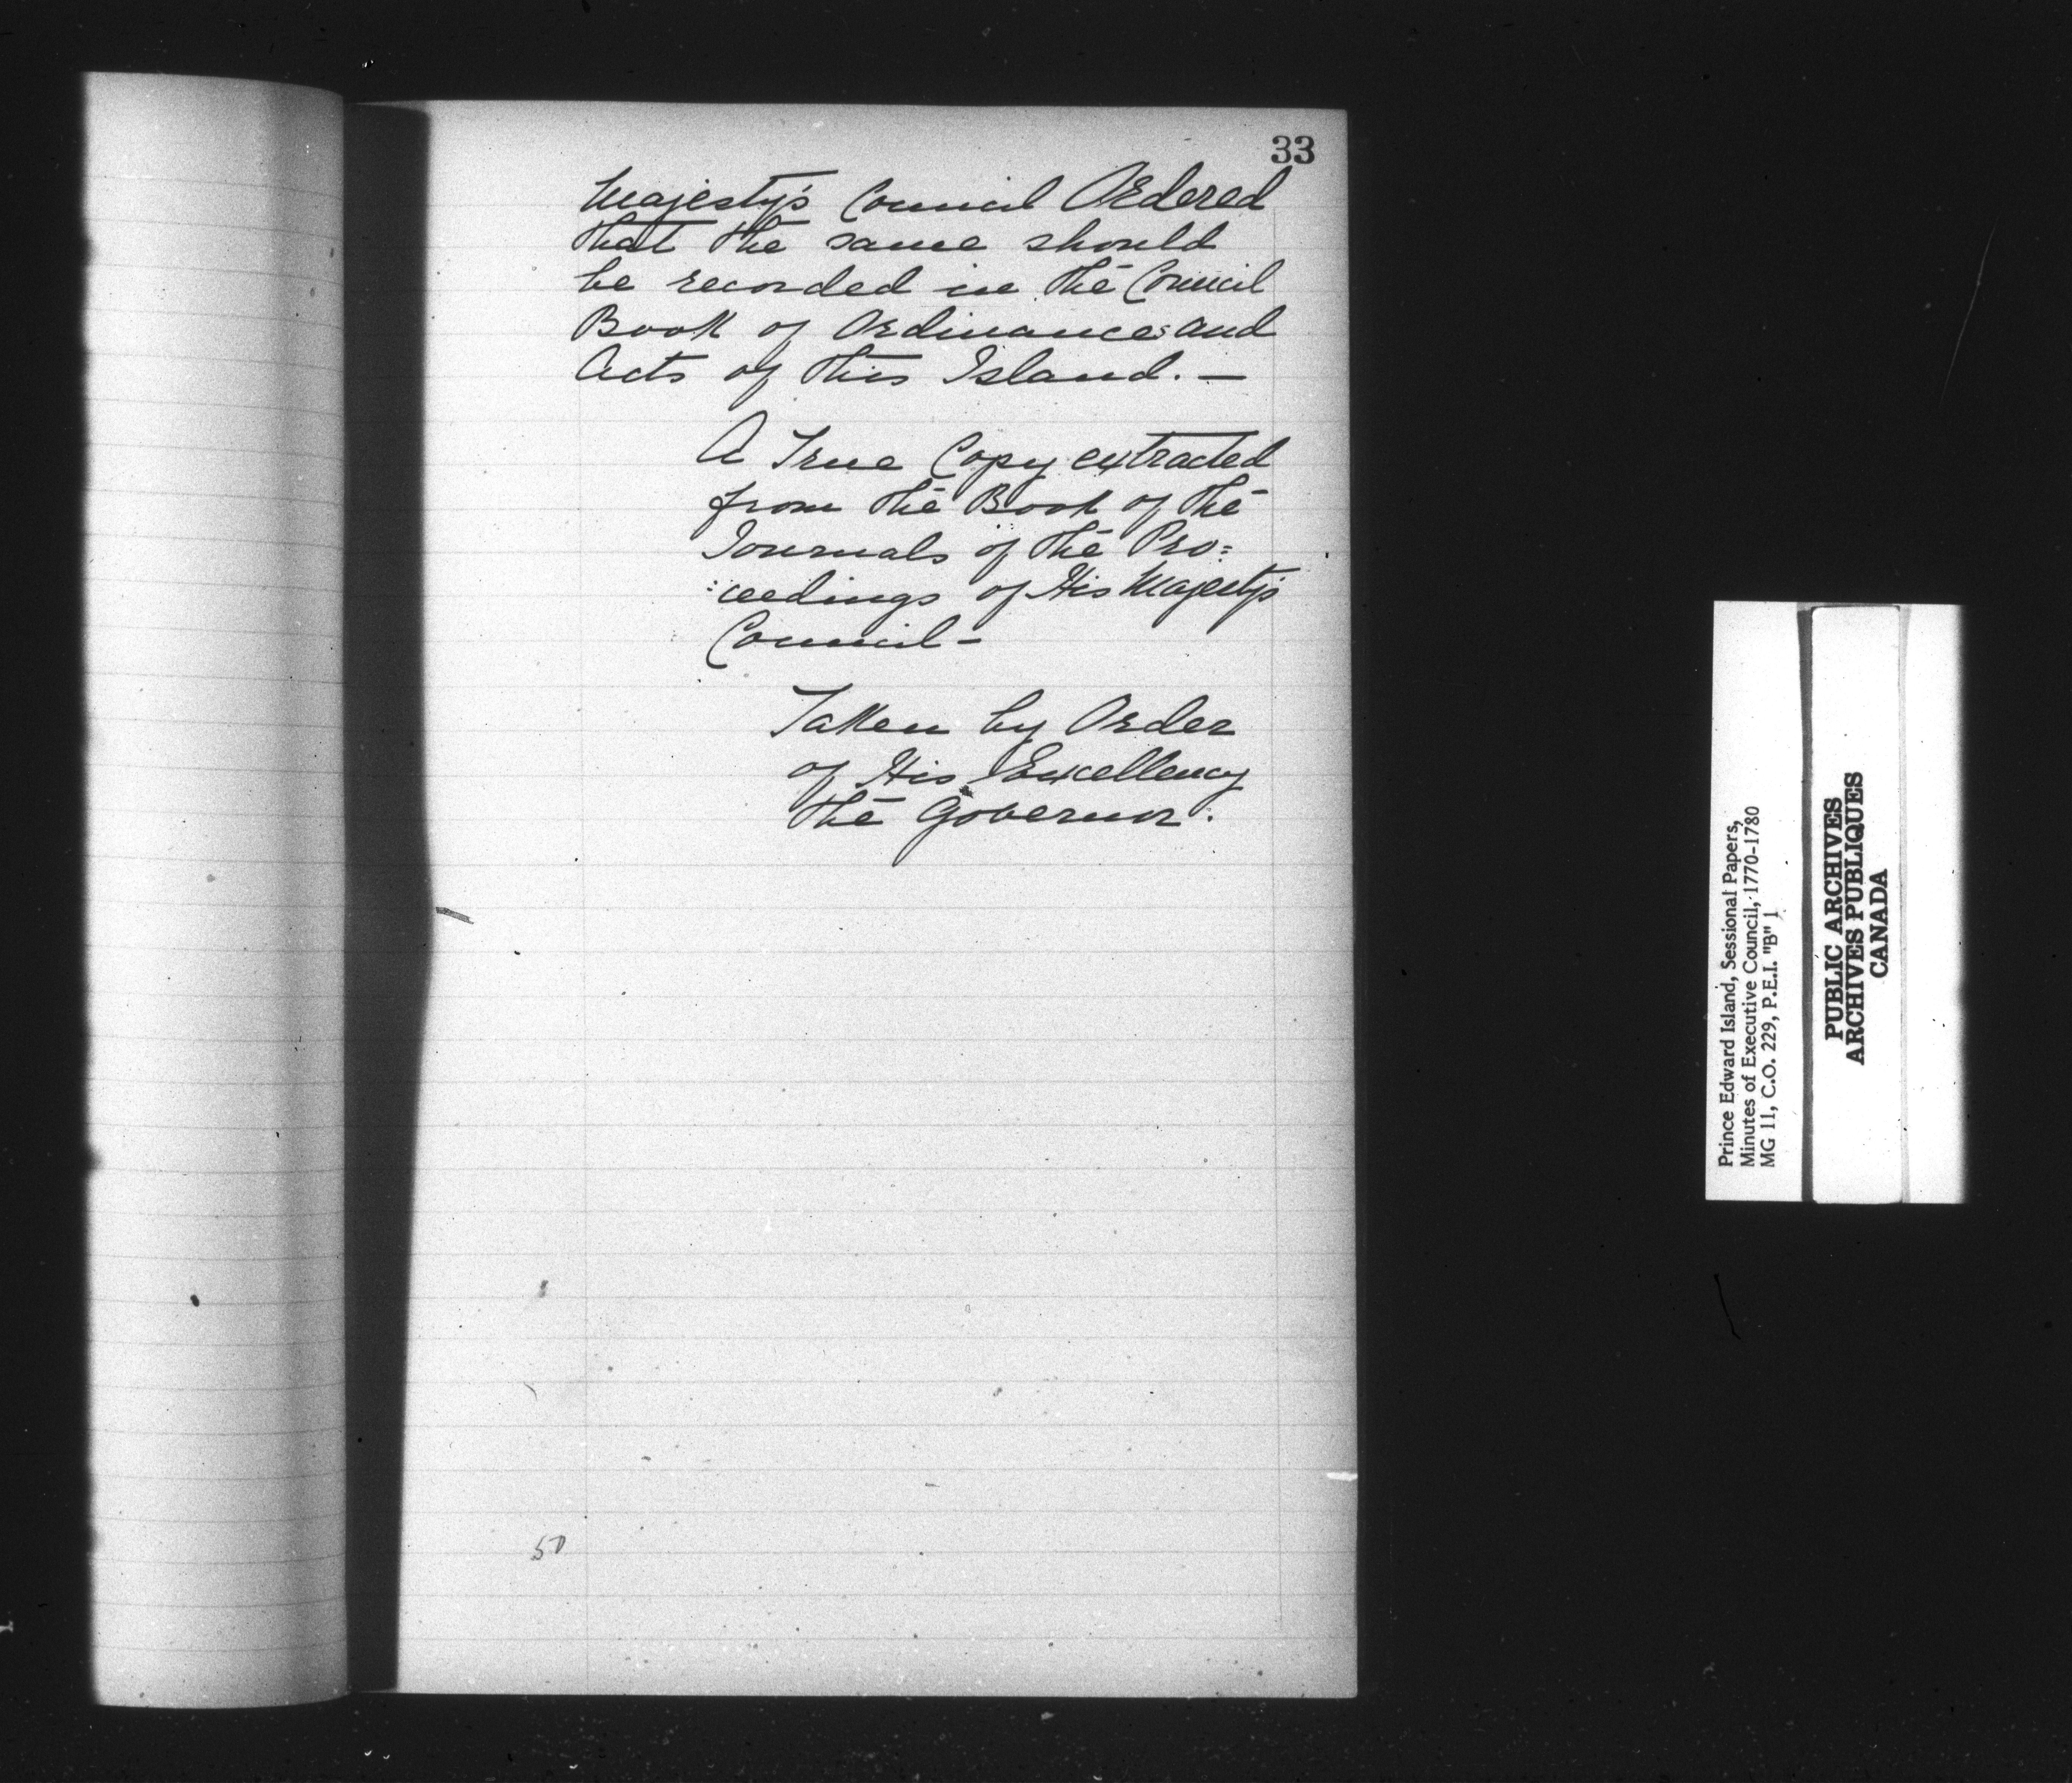 33
Majesty's Council Ordered
that the same should
be recorded in the Council
Book of Ordinances and
Acts of this Island. —
A True Copy extracted
from the Book of the
Journals of the Pro=
:ceedings of His Majesty's
Council —
Taken by Order
of His Excellency
the Governor.
50
Prince Edward Island, Sessional Papers,
Minutes of Executive Council, 1770-1780
MG 11, C.O. 229, P.E.I. "B" 1
PUBLIC ARCHIVES
ARCHIVES PUBLIQUES
CANADA